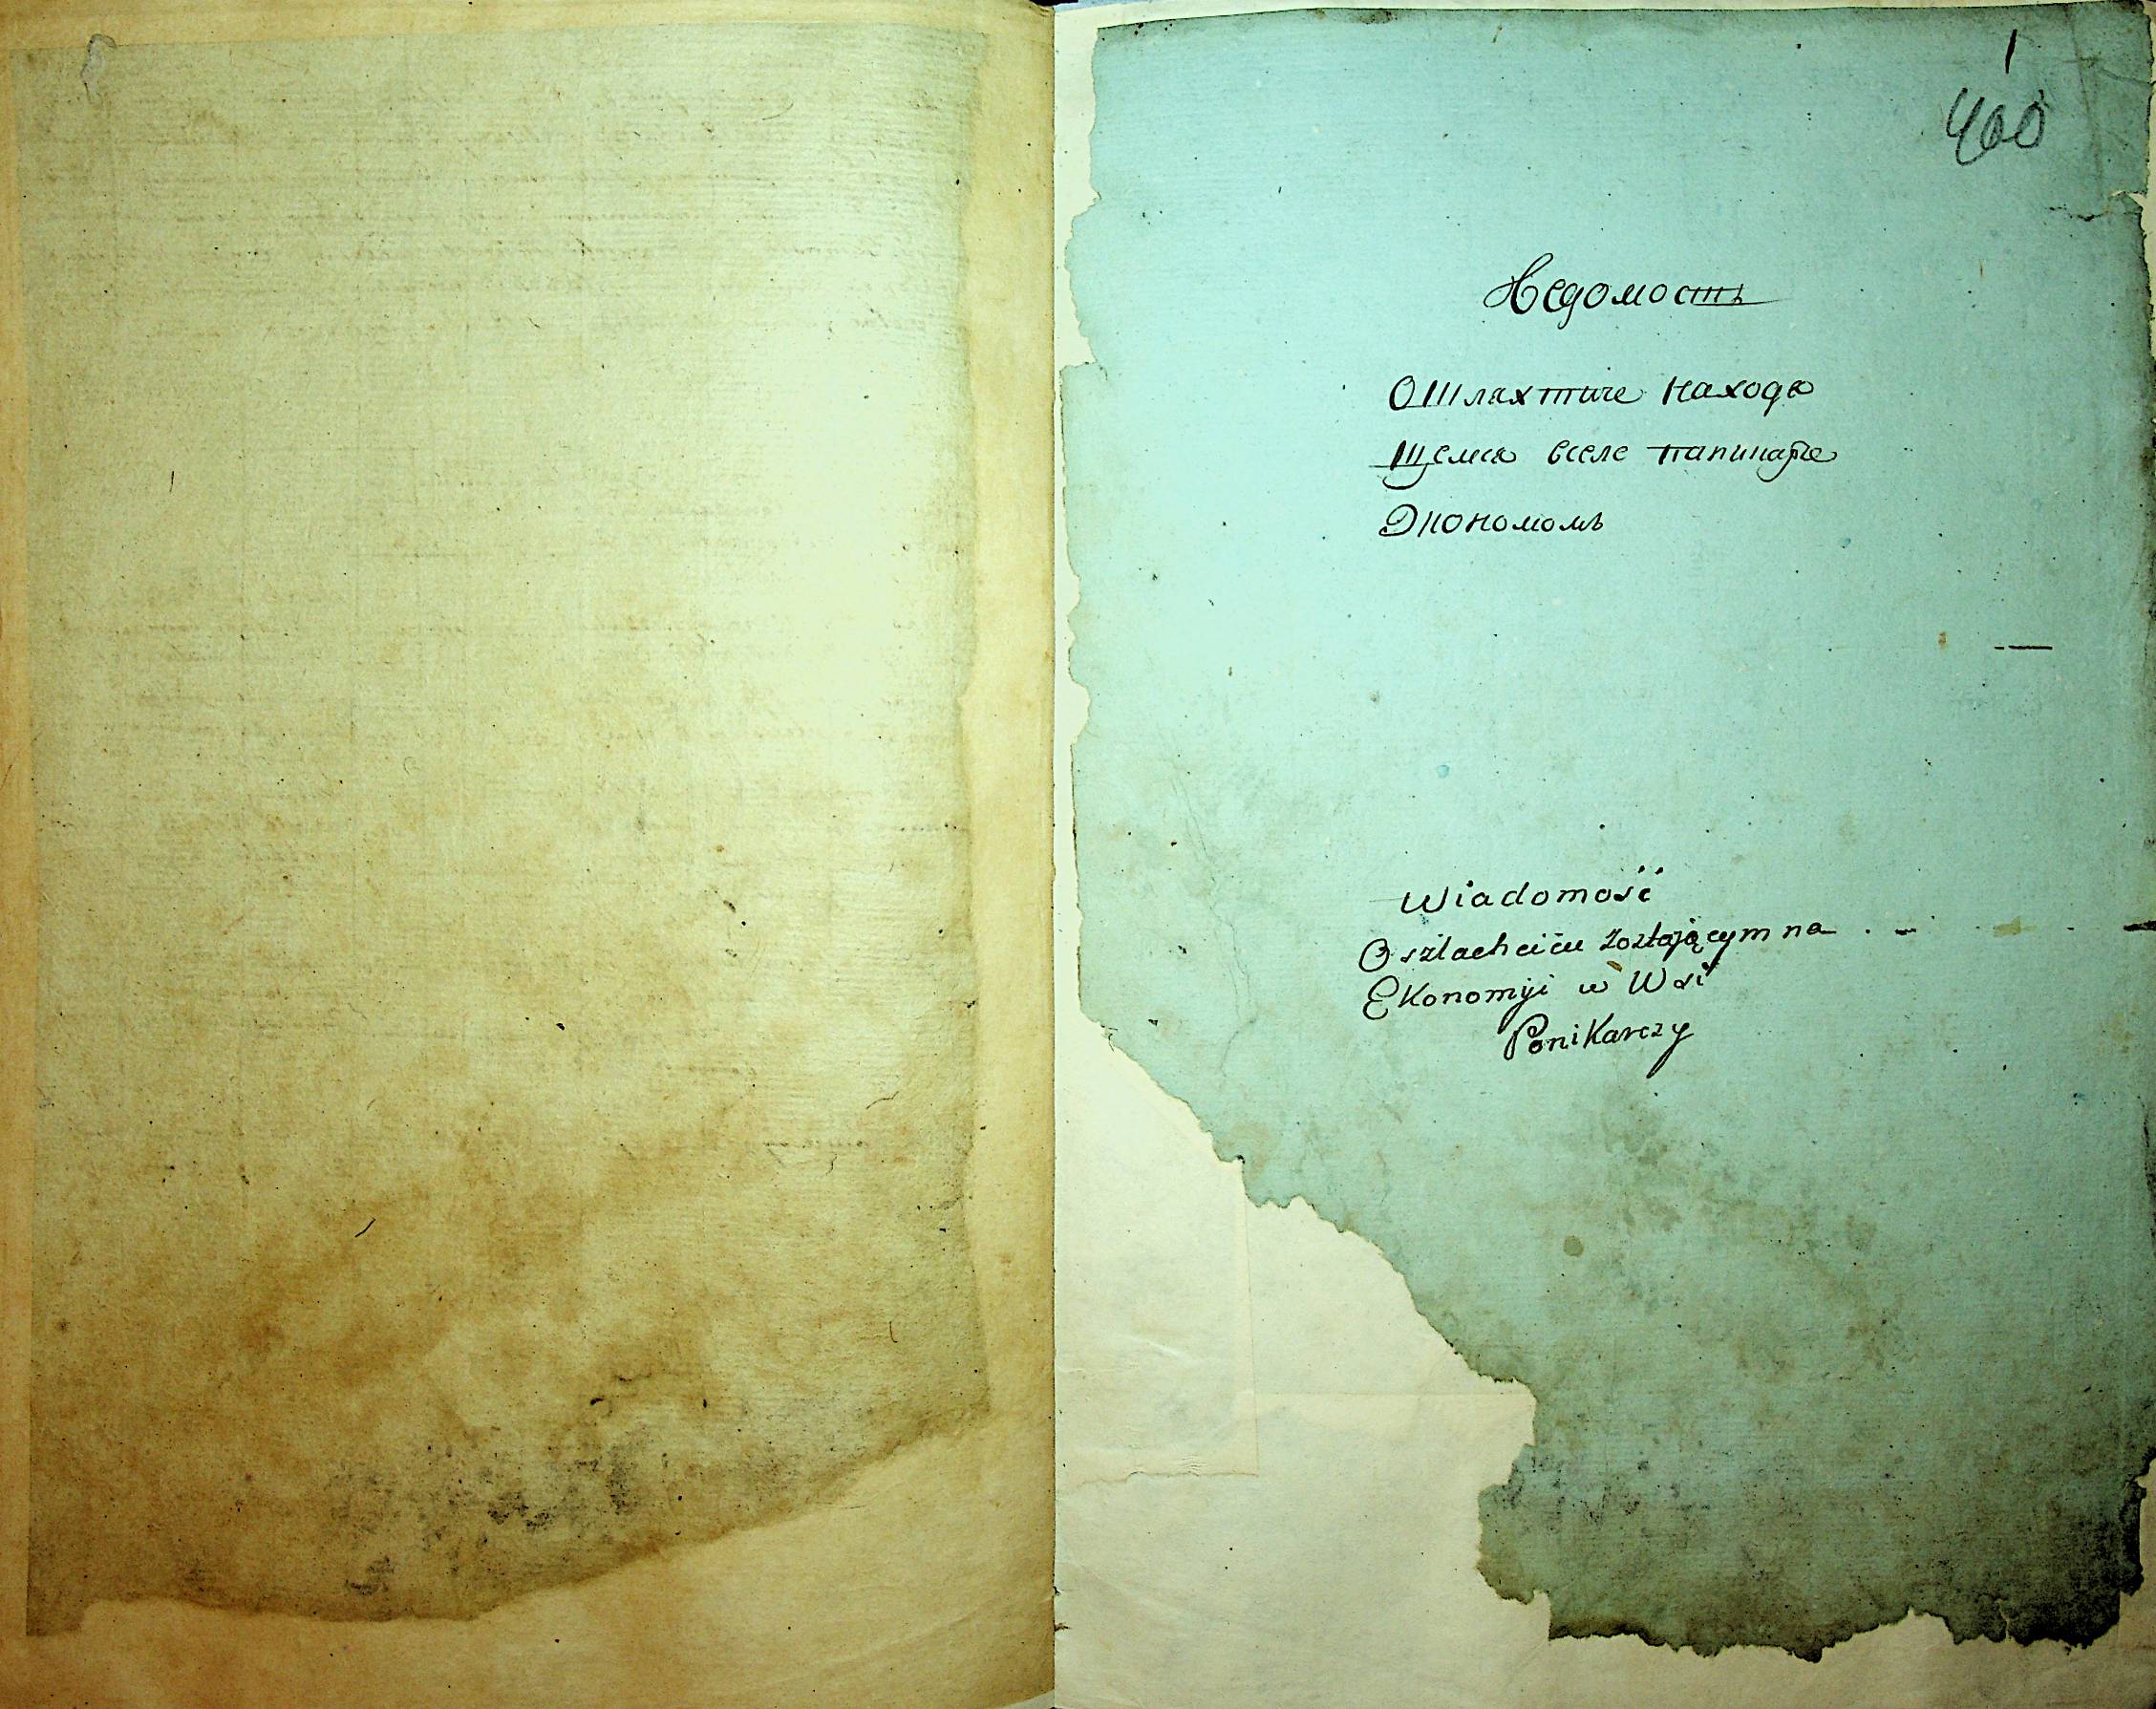 1
400
Ведомость
О Шляхтиче находя
щемся вселе
Экономомъ
Wiadomość
O szlachcicu zostającym na
Ekonomiji w Wsi
Ponikarczy